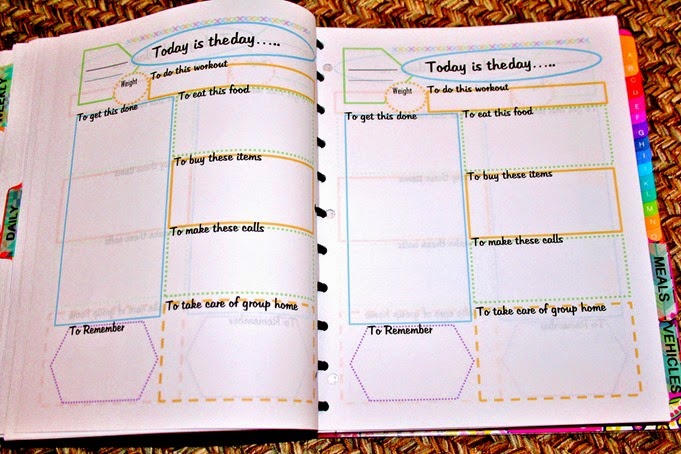 Today is the day.....
To do this workout
Weight
To eat this food
To get this done
To buy these items
To make these calls
To take care of group home
To Remember
DAILY
Today is the day.....
To do this workout
Weight
To eat this food
To get this done
To buy these items
To make these calls
To take care of group home
To Remember
MEALS
VEHICLES